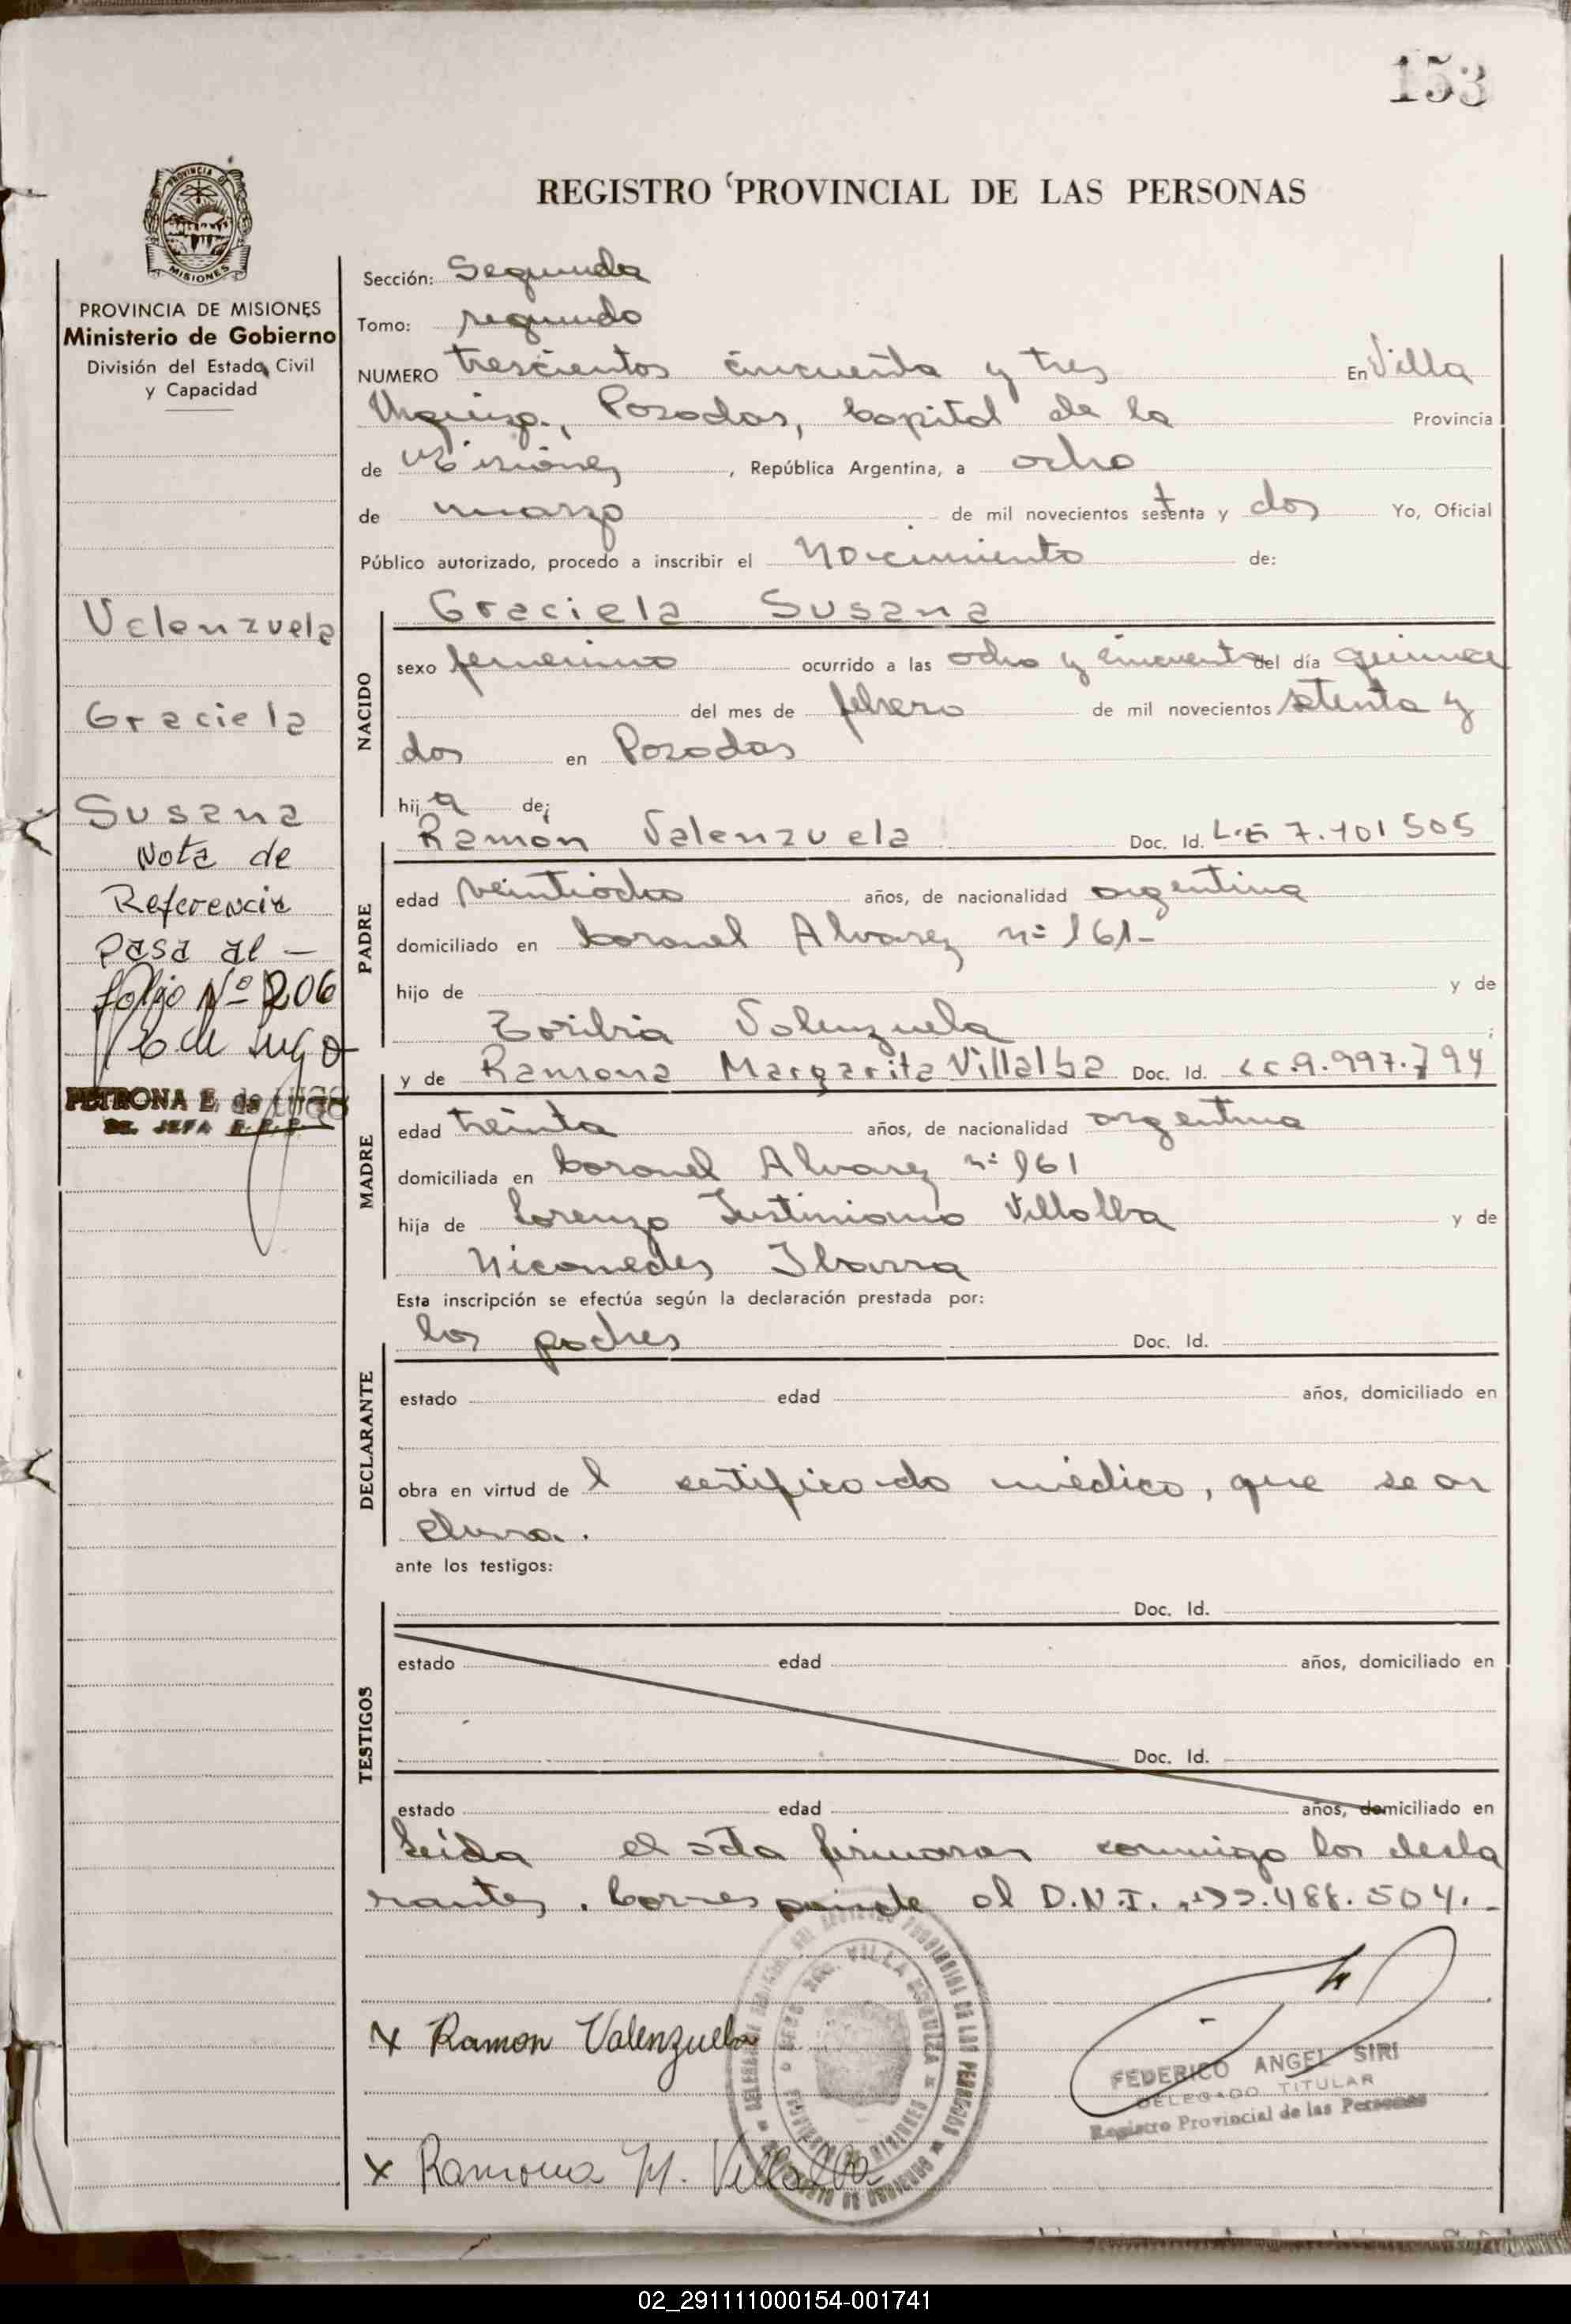 153
PROVINCIA DE
MISIONES
REGISTRO PROVINCIAL DE LAS PERSONAS
PROVINCIA DE MISIONES
Ministerio de Gobierno
División del Estado Civil
y Capacidad
Sección: Segunda
Tomo: segundo
NUMERO trescientos cincuenta y tres En Villa
Urquiza, Posadas, Capital de la Provincia
de Misiones, República Argentina, a ocho
de marzo de mil novecientos setenta y dos Yo, Oficial
Público autorizado, procedo a inscribir el nacimiento de:
Valenzuela
Graciela
Susana
Nota de
Referencia
Pasa al —
folio Nº 206
E de Lugo
PETRONA E. de LUGO
JEFA
NACIDO
Graciela Susana
sexo femenino ocurrido a las ocho y cincuenta del día quince
del mes de febrero de mil novecientos setenta y
dos en Posadas
hija de:
PADRE
Ramón Valenzuela Doc. Id. L.E 7.101505
edad veintiocho años, de nacionalidad argentina
domiciliado en Coronel Alvarez nº 161-
hijo de y de
Toribia Valenzuela ;
MADRE
y de Ramona Margarita Villalba Doc. Id. L.C.9.997.794
edad treinta años, de nacionalidad argentina
domiciliada en Coronel Alvarez nº 161
hija de Lorenzo Justiniano Villalba y de
Nicomedes Ibarra
Esta inscripción se efectúa según la declaración prestada por:
DECLARANTE
los padres Doc. Id.
estado edad años, domiciliado en
obra en virtud del certificado médico, que se ar
chiva.
ante los testigos:
TESTIGOS
Doc. Id.
estado edad años, domiciliado en
Doc. Id.
estado edad años, domiciliado en
Leída el acta firmaran conmigo los decla
rantes. Corresponde al D.N.I. .488.504.-
X Ramon Valenzuela
X Ramona M. Villalba
VILLA URQUIZA
FEDERICO ANGEL SIRI
DELEGADO TITULAR
Registro Provincial de las Personas
02_291111000154-001741